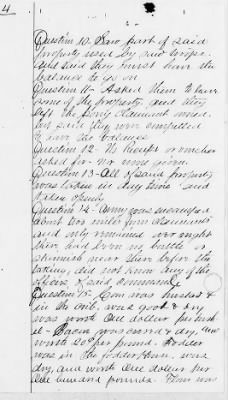 4
Question 10. Saw part of said
property used by said troops.
and said they must have the
balance to go on
Question 11 - Asked them to leave
some of the property, and they
left the pony claimant owned.
but said they were compelled
to have the provisions
Question 12. No receipt or voucher
asked for - no none given.
Question 13 - All of said property
was taken in day time and
taken openly
Question 14 - Army was encamped
about two miles from claimants
and only remained over night
there had been no battle or
skirmish near there before the
taking, did not know any of the
officers of said command.
Question 15 - Corn was husked &
in the crib, was good & dry
was worth One dollar per bush
el - Bacon was cured & dry,
worth 20¢ per pound. Fodder
was in the fodder stack, was
dry, and worth One dollar per
One hundred pounds. Flour was